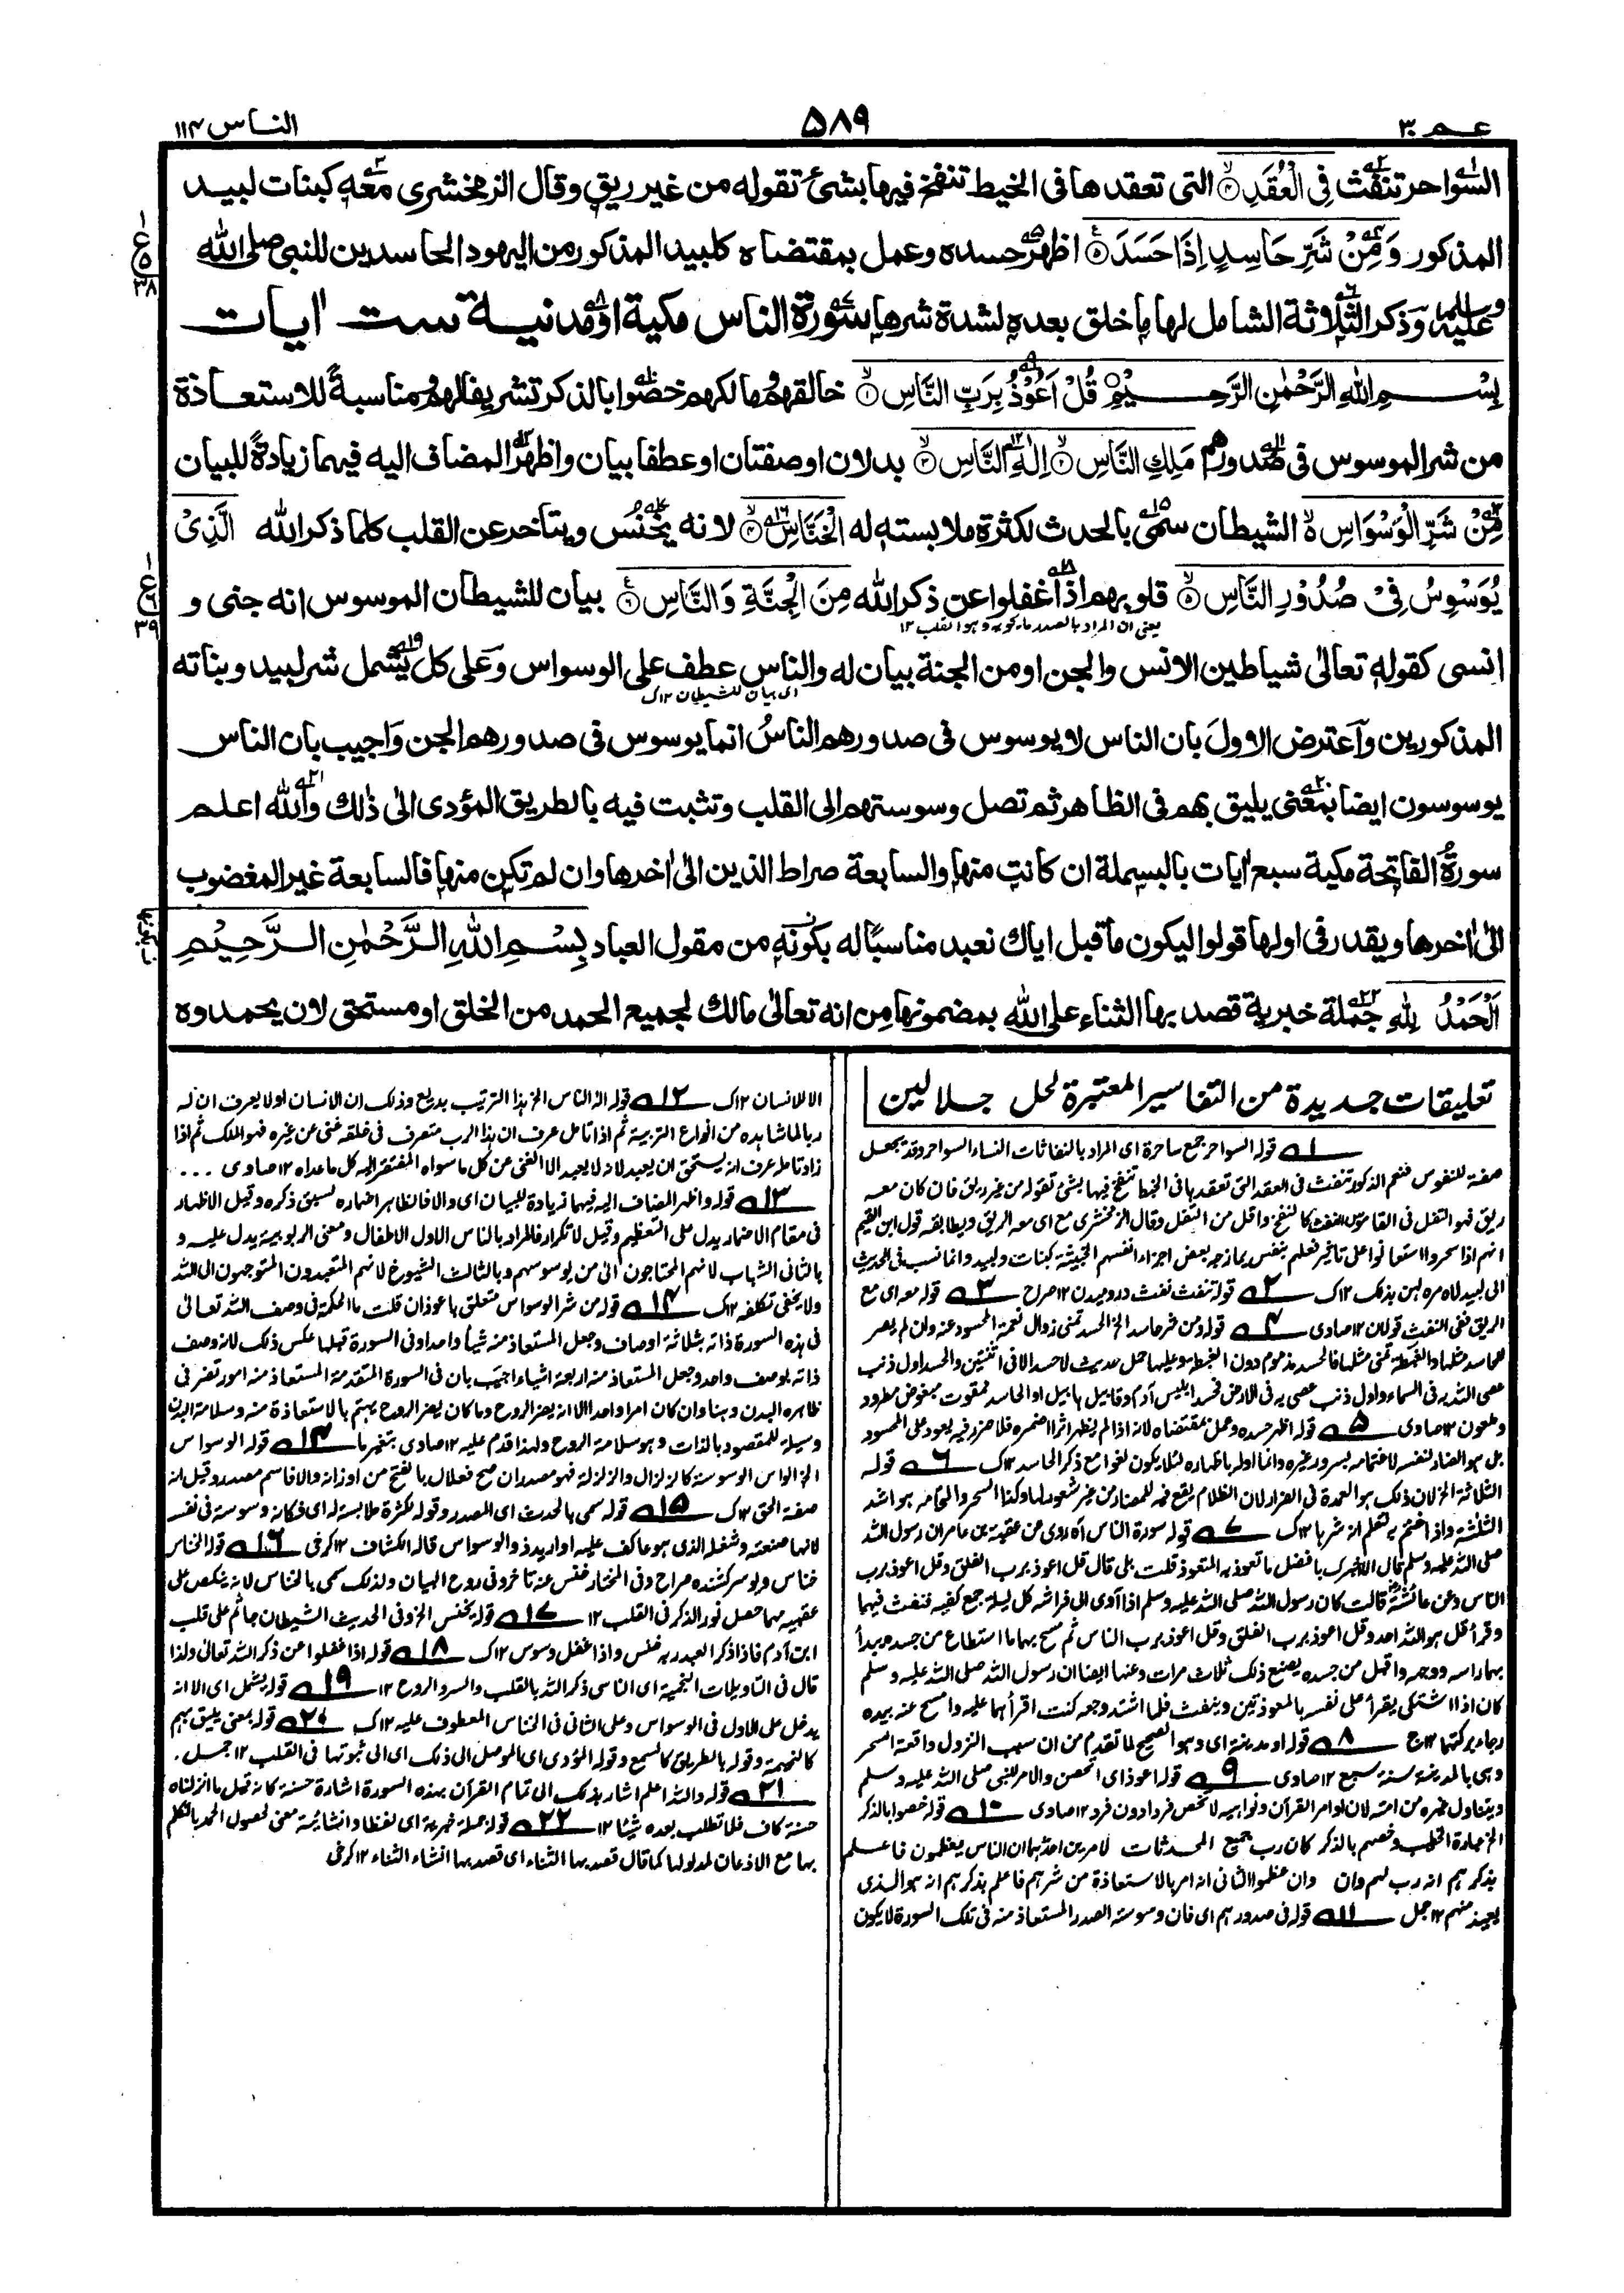 عـم ٣٠
٥٨٩
الناس ١١٤
السواحر تنفث فِي الْعُقَدِ ۙ۝٤ التى تعقدها فى الخيط تنفخ فيها بشئ تقوله من غير ريق وقال الزمخشرى معه كبنات لبيد
المذكور وَمِنْ شَرِّ حَاسِدٍ اِذَا حَسَدَ ۝٥ اظهر حسده وعمل بمقتضاه كلبيد المذكور من اليهود الحاسدين للنبى صلى الله
عليه وسلم وذكر الثلاثة الشامل لها ما خلق بعده لشدة شرها سورة الناس مكية او مدنية ست ايات
بِسْــمِ اللهِ الرَّحْمٰنِ الرَّحِـــيْمِ قُلْ اَعُوْذُ بِرَبِّ النَّاسِ ۙ۝١ خالقهم ومالكهم خصوا بالذكر تشريفا لهم ومناسبةً للاستعاذة
من شر الموسوس فى صدورهم مَلِكِ النَّاسِ ۙ۝٢ اِلٰهِ النَّاسِ ۙ۝٣ بدلان او صفتان او عطفا بيان واظهر المضاف اليه فيهما زيادةً للبيان
مِنْ شَرِّ الْوَسْوَاسِ ۙ الشيطان سمى بالحدث لكثرة ملابسته له الْخَنَّاسِ ۙ۝٤ لانه يخنس ويتاخر عن القلب كلما ذكر الله الَّذِىْ
يُوَسْوِسُ فِىْ صُدُوْرِ النَّاسِ ۙ۝٥ قلوبهم اذا غفلوا عن ذكر الله مِنَ الْجِنَّةِ وَالنَّاسِ ۝٦ بيان للشيطان الموسوس انه جنى و
يعنى ان المراد بالصدر ما يحويه وهو القلب ١٢
انسى كقوله تعالىٰ شياطين الانس والجن او من الجنة بيان له والناس عطف على الوسواس وعلى كل يشمل شر لبيد وبناته
اى بيان للشيطان ١٢ك
المذكورين واعترض الاول بان الناس لا يوسوس فى صدورهم الناسُ انما يوسوس فى صدورهم الجن واجيب بان الناس
يوسوسون ايضا بمعنى يليق بهم فى الظاهر ثم تصل وسوستهم الى القلب وتثبت فيه بالطريق المؤدى الىٰ ذٰلك والله اعلم
سورةُ الفاتحة مكية سبع اٰيات بالبسملة ان كانت منها والسابعة صراط الذين الىٰ اٰخرها وان لم تكن منها فالسابعة غير المغضوب
الىٰ اٰخرها ويقدر فى اولها قولوا ليكون ما قبل اياك نعبد مناسبًا له بكونه من مقول العباد بِسْــمِ اللهِ الرَّحْمٰنِ الـرَّحِـيْـمِ
اَلْحَمْدُ لِلّٰهِ جملة خبرية قصد بها الثناء على الله بمضمونها من انه تعالىٰ مالك لجميع الحمد من الخلق او مستحق لان يحمدوه
تعليقات جديدة من التفاسير المعتبرة لحل جـلالين
١ـه قوله السواحر جمع ساحرة اى المراد بالنفاثات النساء السواحر وقد يجعل
صفة للنفوس فتعم الذكور تنفث فى العقد التى تعقدها فى الخيط تنفخ فيها بشئ تقوله من غير ريق فان كان معه
ريق فهو التفل فى القاموس النفث كالنفخ واقل من التفل وقال الزمخشرى مع اى معه الريق ويطابقه قول ابن القيم
انهم اذا سحروا استعانوا على تاثير فعلهم بنفس يمازجه بعض اجزاء انفسهم الخبيثة كبنات ولبيد وانما نسب فى الحديث
الى لبيد لامره لهن بذلك ١٢ك ٢ـه قوله تنفث نفث در دميدن ١٢ صراح ٣ـه قوله معه اى مع
الريق ففى النفث قولان ١٢ صاوى ٤ـه قوله ومن شر حاسد الخ الحسد تمنى زوال نعمة المحسود عنه وان لم يصر
للحاسد مثلها والغبطة تمنى مثلها فالحسد مذموم دون الغبطة وعليها حمل حديث لا حسد الا فى اثنتين والحسد اول ذنب
عصى الله به فى السماء واول ذنب عصى به فى الارض فحسد ابليس آدم وقابيل هابيل اه والحاسد ممقوت مبغوض مطرود
وملعون ١٢ صاوى ٥ـه قوله اظهر حسده وعمل بمقتضاه لانه اذا لم يظهر اثر ما اضمره فلا ضرر فيه يعود على المحسود
بل هو الضار لنفسه لاغتمامه بسرور غيره وانما اوله باظهاره لئلا يكون لغوا مع ذكر الحاسد ١٢ك ٦ـه قوله
الثلاثة الخ لان ذلك هو العمدة فى الضرار لان الظلام يقع فيه المضار من غير شعور لها وكذا السحر والحاسد هو اشد
الثلثة واذا ختم به ليعلم انه شرها ١٢ك ٧ـه قوله سورة الناس اه روى عن عقبة بن عامر ان رسول الله
صلى الله عليه وسلم قال الا اخبرك بافضل ما تعوذ به المتعوذ قلت بلى قال قل اعوذ برب الفلق وقل اعوذ برب
الناس وعن عائشة قالت كان رسول الله صلى الله عليه وسلم اذا آوى الى فراشه كل ليلة جمع كفيه فنفث فيهما
وقرأ قل هو الله احد وقل اعوذ برب الفلق وقل اعوذ برب الناس ثم مسح بهما ما استطاع من جسده يبدأ
بهما راسه ووجهه وما اقبل من جسده يصنع ذلك ثلاث مرات وعنها ايضا ان رسول الله صلى الله عليه وسلم
كان اذا اشتكى يقرأ على نفسه بالمعوذتين وينفث فلما اشتد وجعه كنت اقرأهما عليه وامسح عنه بيده
رجاء بركتها ١٢ج ٨ـه قوله او مدنية اى وهو الصحيح لما تقدم من ان سبب النزول واقعة السحر
وهى بالمدينة سنة سبع ١٢ صاوى ٩ـه قوله اعوذ اى اتحصن والامر للنبى صلى الله عليه وسلم
ويتناول غيره من امته لان اوامر القرآن ونواهيه لا تخص فردا دون فرد ١٢ صاوى ١٠ـه قوله خصوا بالذكر
الخ عبارة الخطيب وخصهم بالذكر كان رب جميع المحدثات لامرين احدهما ان الناس يعظمون فاعلم
بذكرهم انه رب لهم وان وان عظموا الثانى انه امر بالاستعاذة من شرهم فاعلم بذكرهم انه هو الذى
يعيذ منهم ١٢ جمل ١١ـه قوله فى صدورهم اى فان وسوسة الصدر المستعاذ منه فى تلك السورة لا يكون
الا للانسان ١٢ك ١٢ـه قوله اله الناس الخ هذا الترتيب بديع وذلك ان الانسان اولا يعرف ان له
ربا لما شاهده من انواع التربية ثم اذا تامل عرف ان هذا الرب متصرف فى خلقه غنى عن غيره فهو الملك ثم اذا
زاد تامله عرف انه يستحق ان يعبد لانه لا يعبد الا الغنى عن كل ما سواه المفتقر اليه كل ما عداه ١٢ صاوى ...
١٣ـه قوله واظهر المضاف اليه فيهما زيادة للبيان اى والا فالظاهر اضماره لسبق ذكره وقيل الاظهار
فى مقام الاضمار يدل على التعظيم وقيل لا تكرار فالمراد بالناس الاول الاطفال ومعنى الربوبية يدل عليه و
بالثانى الشباب لانهم المحتاجون الى من يوسوسهم وبالثالث الشيوخ لانهم المتعبدون المتوجهون الى الله
ولا يخفى تكلفه ١٢ك ١٤ـه قوله من شر الوسواس متعلق باعوذ ان قلت ما الحكمة فى وصف الله تعالىٰ
فى هذه السورة ذاته بثلاثة اوصاف وجعل المستعاذ منه شيأ واحدا وفى السورة قبلها عكس ذلك لانه وصف
ذاته بوصف واحد وجعل المستعاذ منه اربعة اشياء اجيب بان فى السورة المتقدمة المستعاذ منه امور تضر فى
ظاهره البدن وهنا وان كان امرا واحدا الا انه يضر الروح وما كان يضر الروح يهتم بالاستعاذة منه وسلامة البدن
وسيلة للمقصود بالذات وهو سلامة الروح ولهذا قدم عليه ١٢ صاوى بتغير ما ١٤ـه قوله الوسواس
الخ الواس الوسوسة كالزلزال والزلزلة فهو مصدران صح فعلال بالفتح من اوزانه والا فاسم مصدر وقيل انه
صفة الحق ١٢ك ١٥ـه قوله سمى بالحدث اى المصدر وقوله لكثرة ملابسته له اى فكانه وسوسة فى نفسه
لانها صنعته وشغله الذى هو عاكف عليه او اريد ذو الوسواس قاله الكشاف ١٢ كرخى ١٦ـه قوله الخناس
خناس ديو سركشنده صراح وفى المختار خنس عنه تاخر وفى روح البيان ولذلك سمى بالخناس لانه ينكص على
عقبيه مهما حصل نور الذكر فى القلب ١٢ ١٧ـه قوله يخنس الخ وفى الحديث الشيطان جاثم على قلب
ابن آدم فاذا ذكر العبد ربه خنس واذا غفل وسوس ١٢ك ١٨ـه قوله اذا غفلوا عن ذكر الله تعالىٰ ولذا
قال فى التاويلات النجمية اى الناسى ذكر الله بالقلب والسر والروح ١٢ ١٩ـه قوله يشمل اى الا انه
يدخل على الاول فى الوسواس وعلى الثانى فى الناس المعطوف عليه ١٢ك ٢٠ـه قوله بمعنى يليق بهم
كالنميمة وقوله بالطريق كالسمع وقوله المؤدى اى الموصل الى ذلك اى الى ثبوتها فى القلب ١٢ جمل.
٢١ـه قوله والله اعلم اشار بذلك الى تمام القرآن بهذه السورة اشارة حسنة كانه قيل ما انزلناه
حسنة كاف فلا تطلب بعده شيئا ١٢ ٢٢ـه قوله جملة خبرية اى لفظا وانشائية معنى لحصول الحمد بالتكلم
بها مع الاذعان لمدلولها كما قال قصد بها الثناء اى قصد بها انشاء الثناء ١٢ كرخى